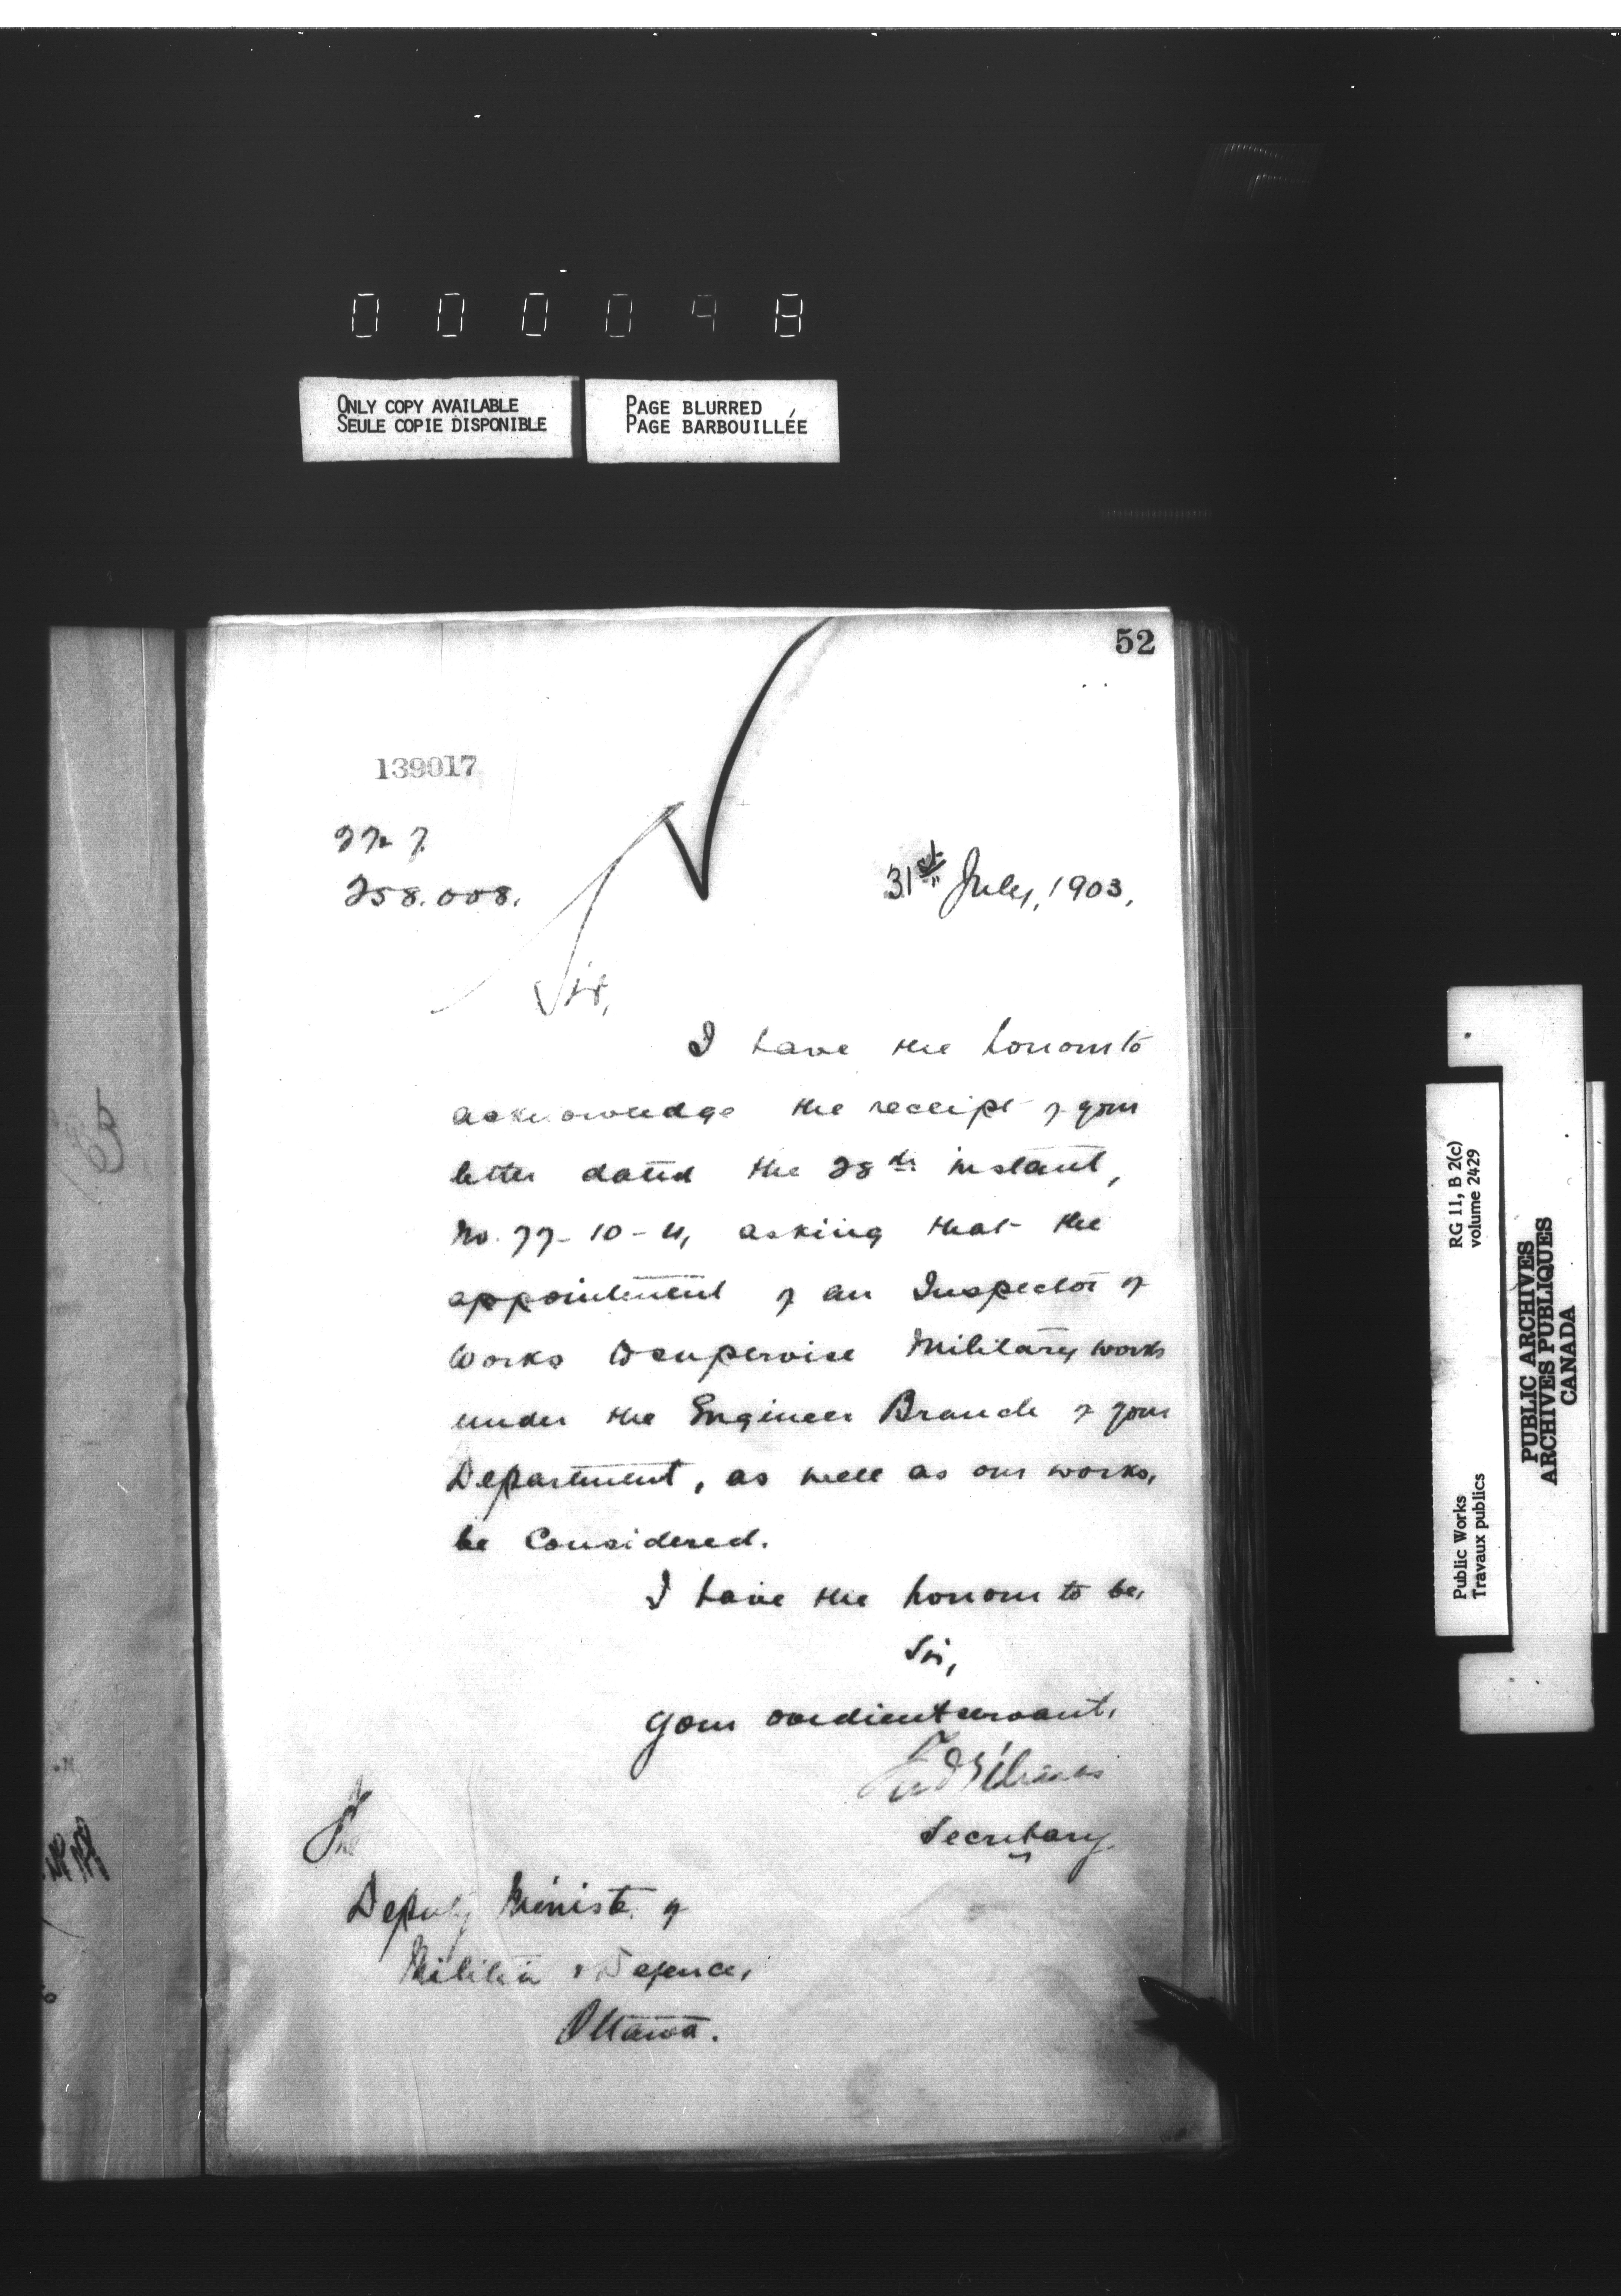 000098
ONLY COPY AVAILABLE
SEULE COPIE DISPONIBLE
PAGE BLURRED
PAGE BARBOUILLÉE
52
139017
258.008.
31st July, 1903,
Sir,
I have the honour to
acknowledge the receipt of your
letter dated the 28th instant,
No. 77-10-4, asking that the
appointment of an Inspector of
Works to supervise Military works
under the Engineer Branch of your
Department, as well as our works,
be Considered.
I have the honour to be,
Sir,
Your obedient servant,
Fred Gélinas
Secretary
The
Deputy Minister of
Militia & Defence,
Ottawa.
Public Works
Travaux publics
RG 11, B 2(c)
volume 2429
PUBLIC ARCHIVES
ARCHIVES PUBLIQUES
CANADA